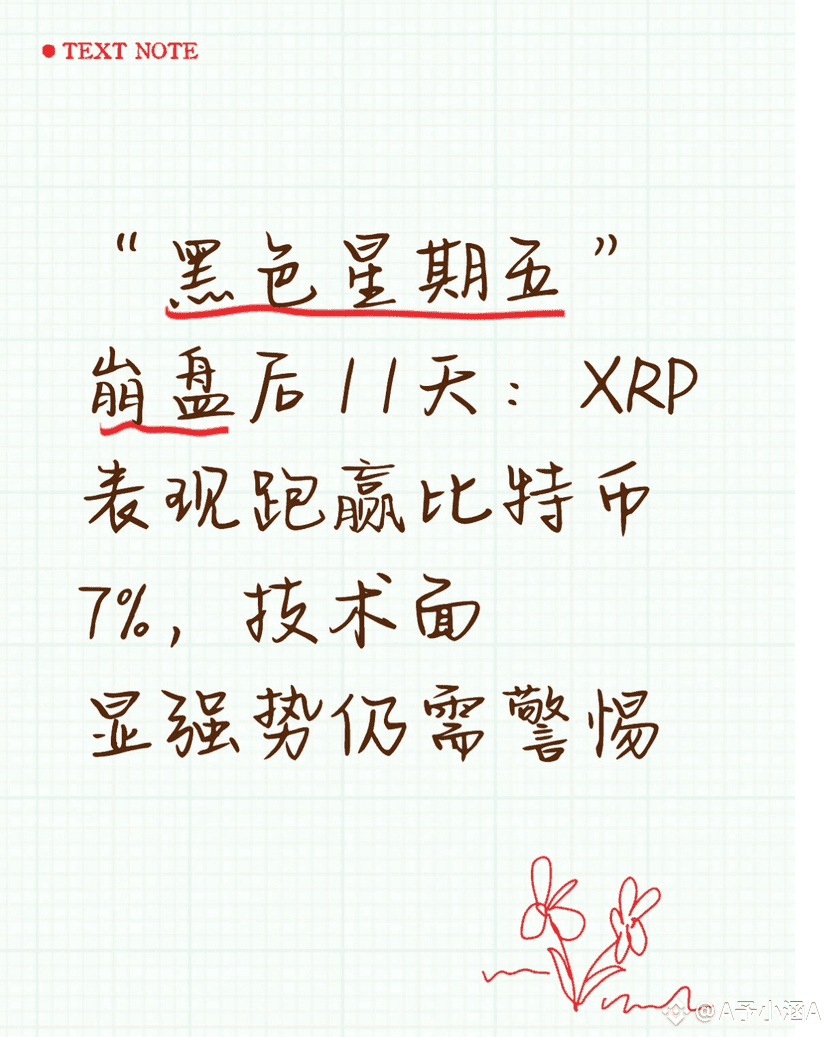 TEXT NOTE
“黑色星期五”
崩盘后11天：XRP
表现跑赢比特币
7%，技术面
显强势仍需警惕
@A予小涵A